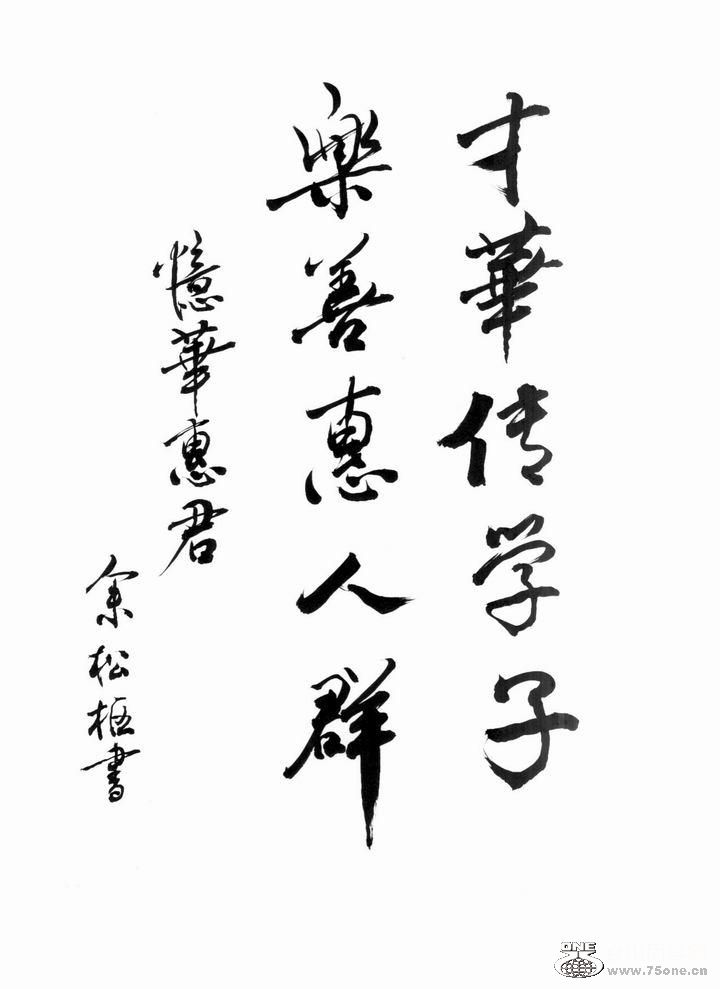 才華传学子
樂善惠人群
憶華惠君
余松柩書
ONE
www.75one.cn